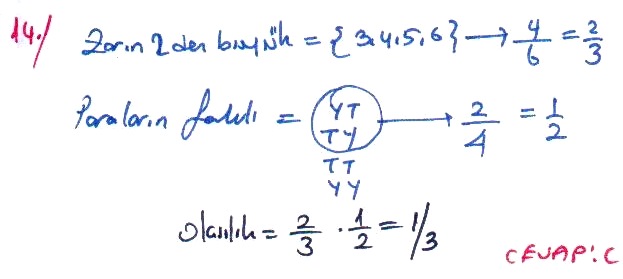 14./ Zarın 2 den büyük = {3,4,5,6} → 4/6 = 2/3
Paraların farklı = YT TY → 2/4 = 1/2
TT
YY
Olasılık = 2/3 · 1/2 = 1/3
CEVAP: C